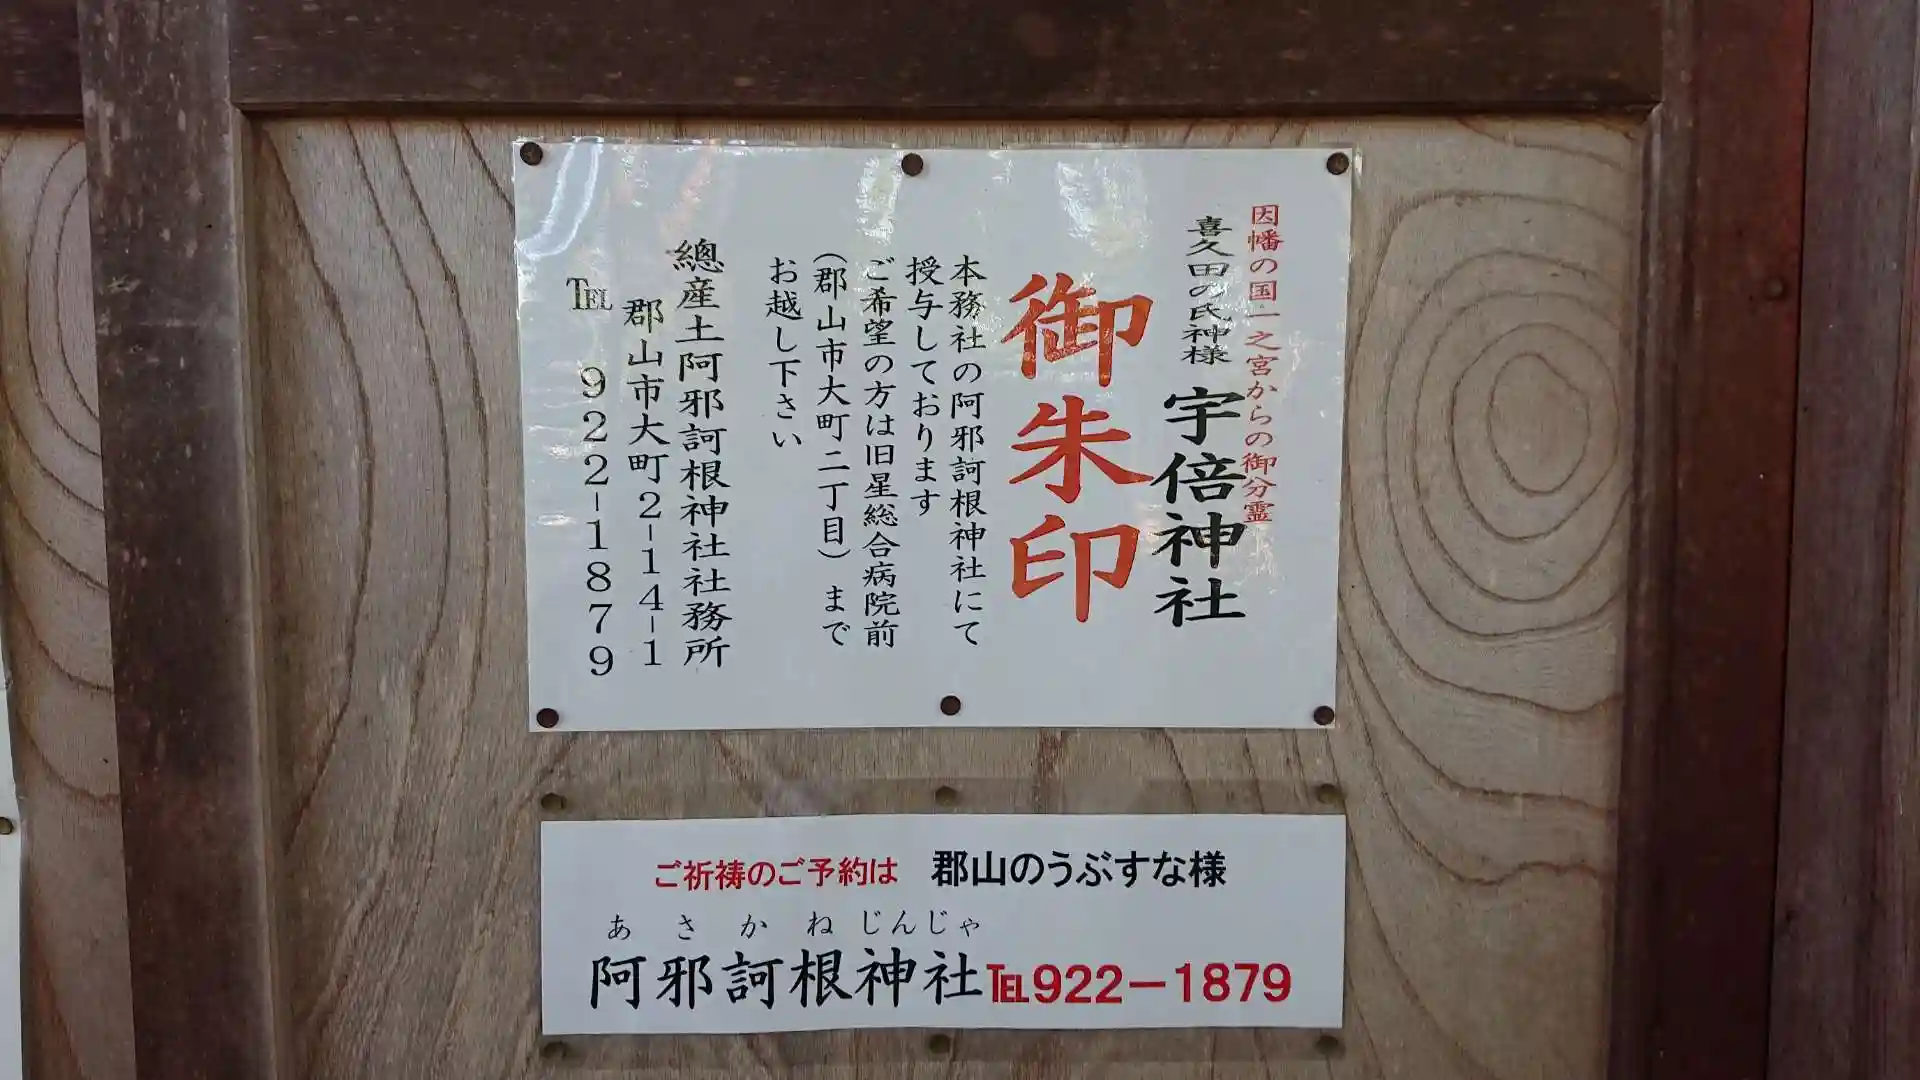 因幡の国一之宮からの御分霊
喜久田の氏神様 宇倍神社
御朱印
本務社の阿邪訶根神社にて
授与しております
ご希望の方は旧星総合病院前
（郡山市大町二丁目）まで
お越し下さい
總産土阿邪訶根神社社務所
郡山市大町2-14-1
℡ 922-1879
ご祈祷のご予約は 郡山のうぶすな様
あさかねじんじゃ
阿邪訶根神社℡922-1879